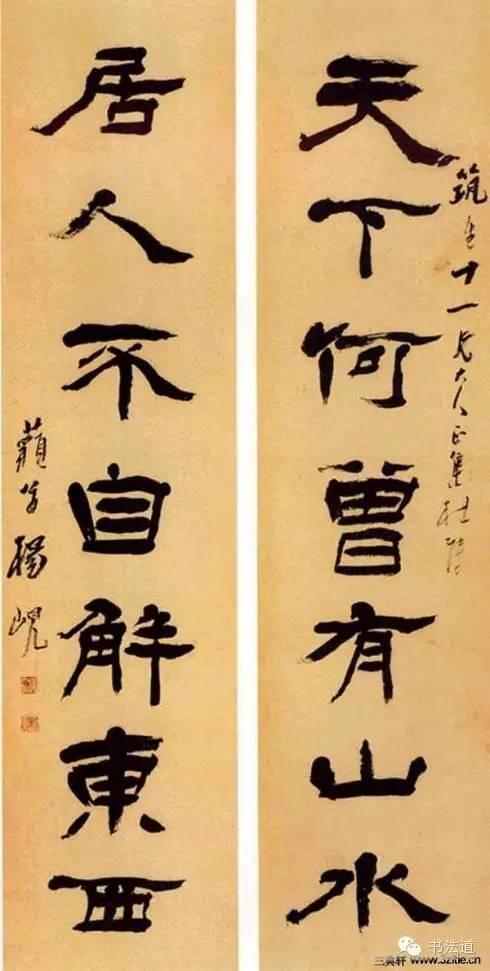 筑生十一兄大人正集杜陸
天下何曾有山水
居人不自解東西
藐翁楊峴
书法道
www.5zitie.cn